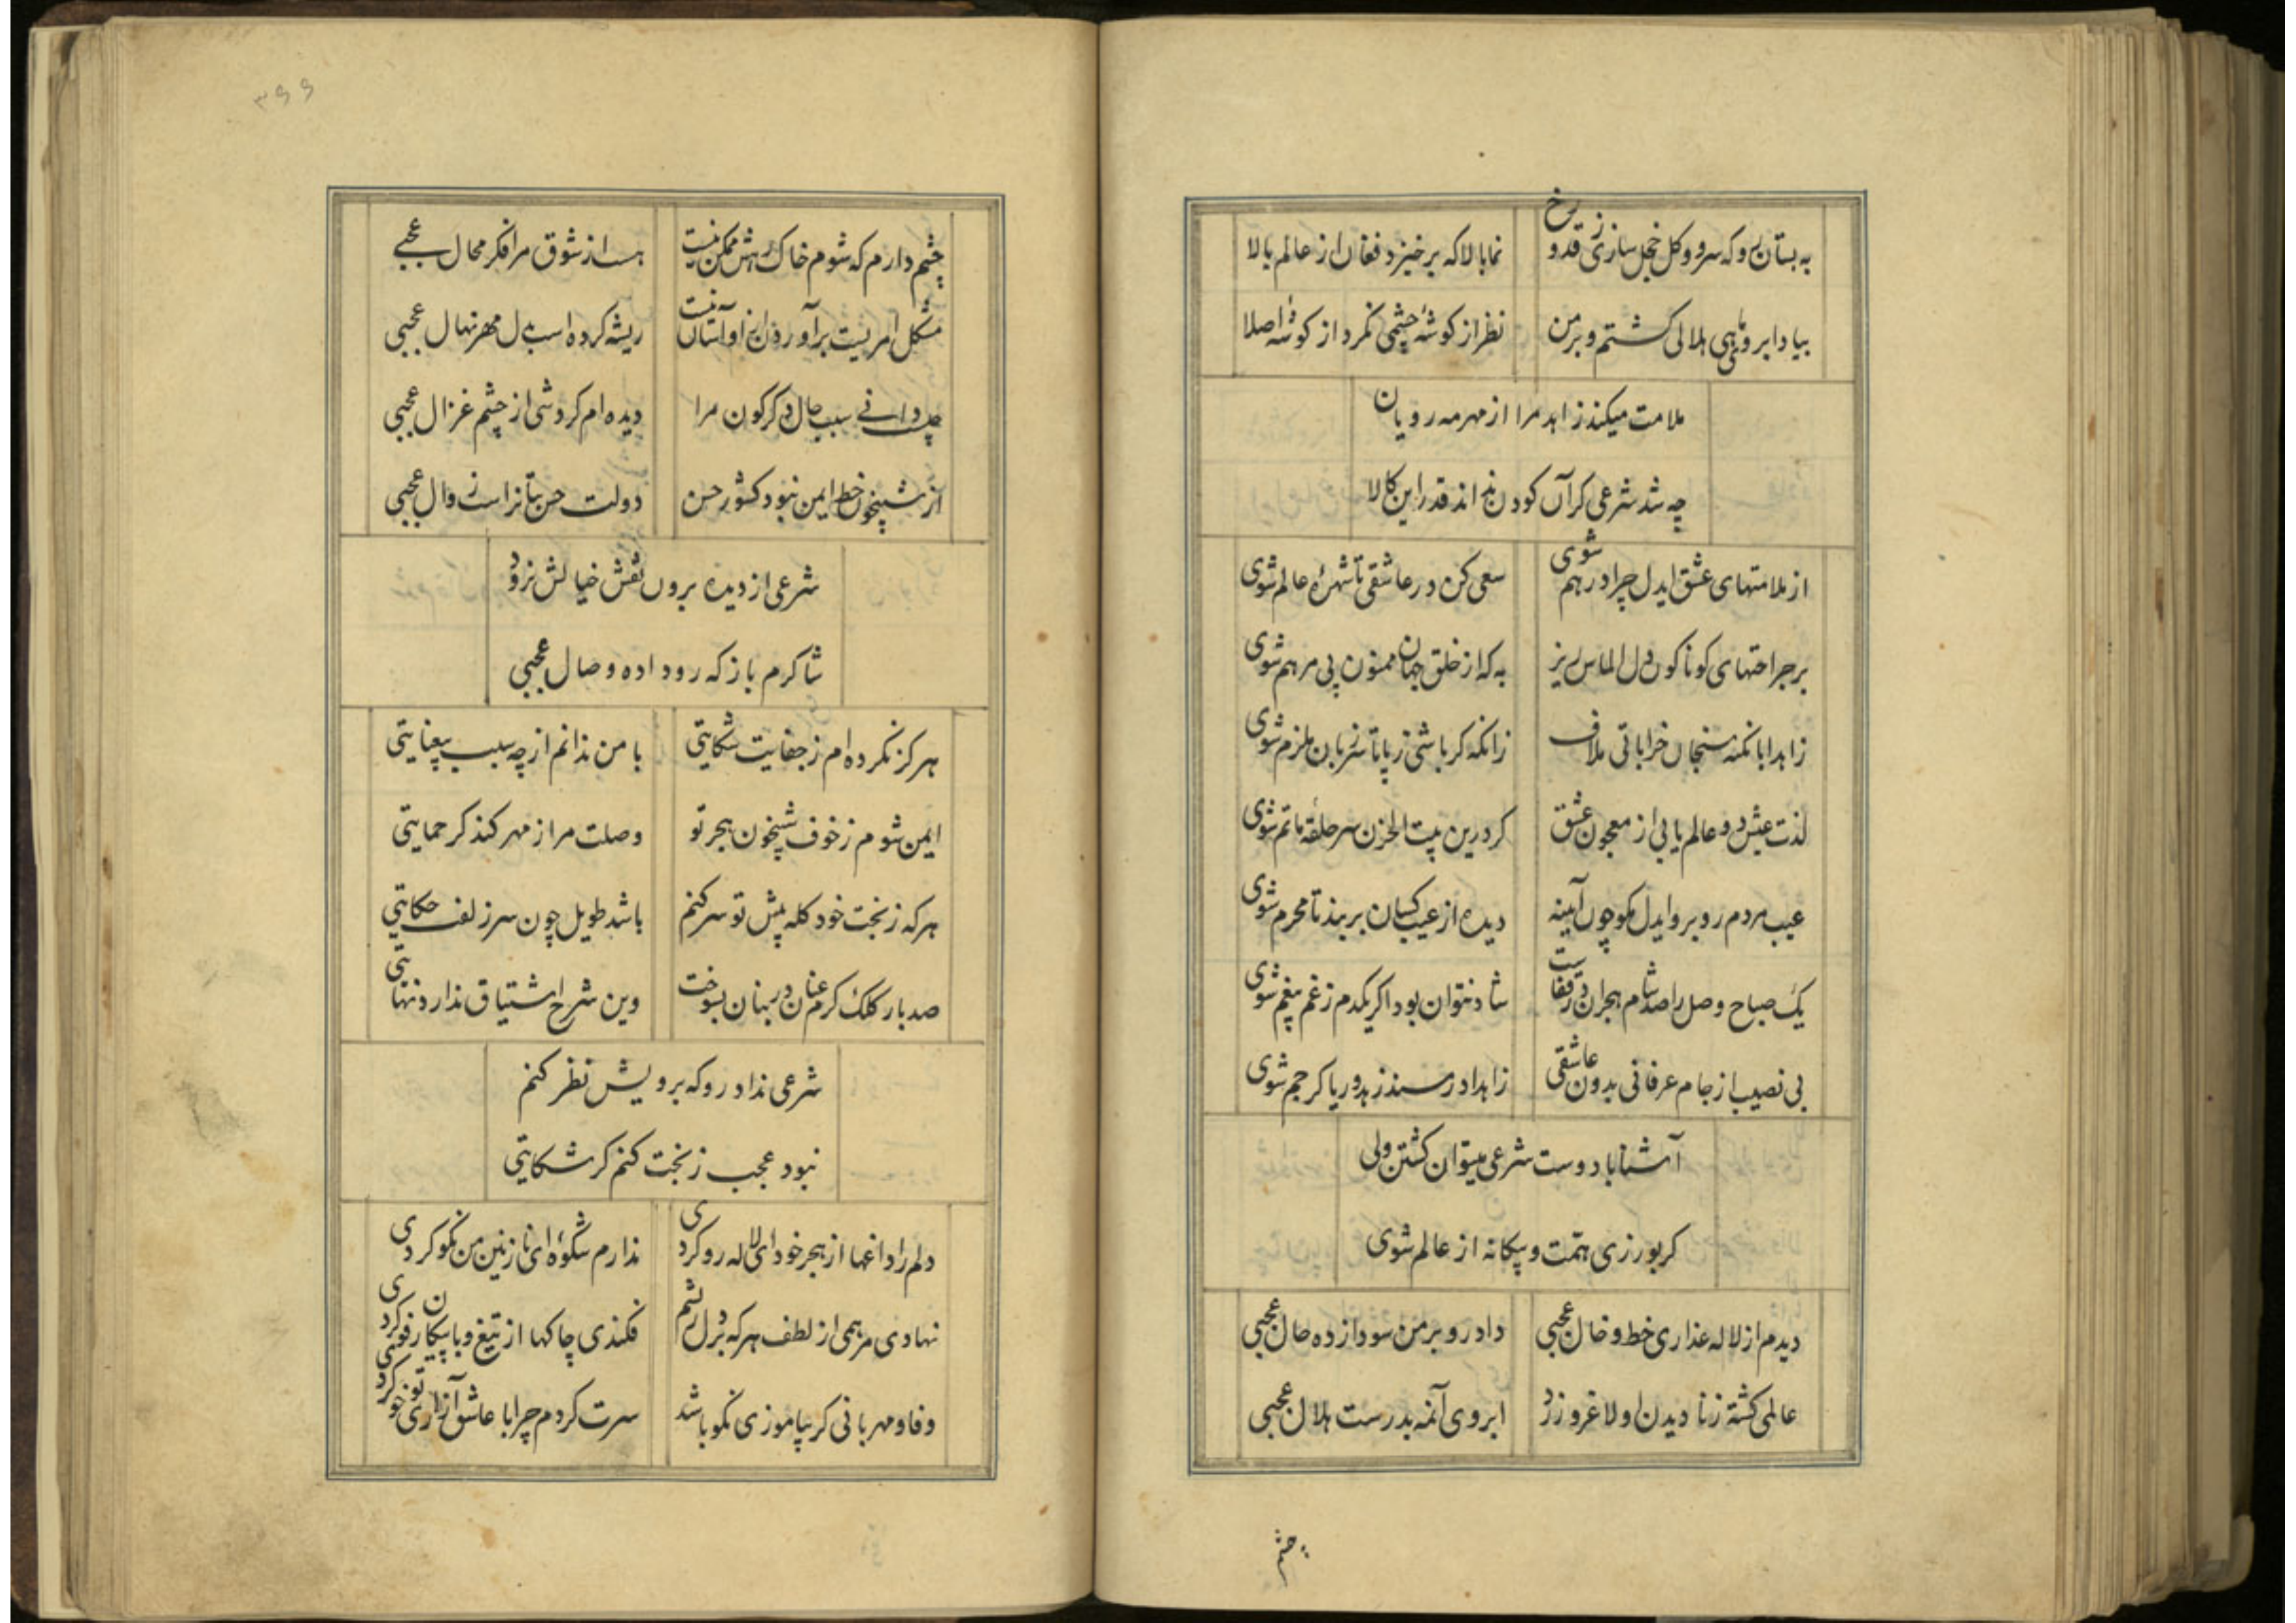 به بستان رو که سرو و کل خجل سازی ز قد و رخ
نما بالا که برخیزد فغان از عالم بالا
بیاد ابروئی ماهی هلالی کشتم و بر من
نظر از کوشهٔ چشمی نکرد از کوشهٔ اصلا
ملامت میکند زاهد مرا از مهر مه رویان
چه شد شرعی کر آن کودن نداند قدر این کالا
از ملامتهای عشق ایدل چرا درهم شوی
سعی کن در عاشقی تا شهرهٔ عالم شوی
بر جراحتهای کوناکون دل الماس ریز
به که از خلق جهان ممنون پی مرهم شوی
زاهدا با نکته سنجان خراباتی ملاف
زانکه کر باشی ز پا تا سر زبان ملزم شوی
لذت عیش دو عالم یابی از معجون عشق
کر درین بیت الحزن سر حلقهٔ ماتم شوی
عیب مردم روبرو ایدل مکو چون آینه
دیده از عیب کسان بربند تا محرم شوی
یک صباح وصل را صد شام هجران در قفاست
شاد نتوان بود اکر یکدم ز غم بیغم شوی
بی نصیب از جام عرفانی بدون عاشقی
زاهدا در مسند زهد و ریا کر جم شوی
آشنا با دوست شرعی میتوان کشتن ولی
کر بورزی همت و بیکانه از عالم شوی
دیدم از لاله عذاری خط و خال عجبی
داد رو بر من سودازده حال عجبی
عالمی کشته ز نادیدن او لاغر و زرد
ابروی آنمه بدرست هلال عجبی
چشم
۳۹۹
چشم دارم که شوم خاک رهش ممکن نیست
هست از شوق مرا فکر محال عجبی
مشکل امریست برآوردن از او آسان نیست
ریشه کرده است بدل مهر نهال عجبی
چه دانی سبب حال دکرکون مرا
دیده ام کردشی از چشم غزال عجبی
از شبیخون خط ایمن نبود کشور حسن
دولت حسن بتانرا است زوال عجبی
شرعی از دیده برون نقش خیالش نرود
شاکرم باز که رو داده وصال عجبی
هرکز نکرده ام ز جفایت شکایتی
با من ندانم از چه سبب بیعنایتی
ایمن شوم ز خوف شبیخون هجر تو
وصلت مرا ز مهر کند کر حمایتی
هرکه ز بخت خود کله پیش تو سر کنم
باشد طویل چون سر زلفت حکایتی
صد بار کلک کرم عنان در بنان بسوخت
وین شرح اشتیاق ندارد نهایتی
شرعی نداد رو که برویش نظر کنم
نبود عجب ز بخت کنم کر شکایتی
دلم را داغها از هجر خود ای لاله رو کردی
ندارم شکوهٔ ای نازنین من نکو کردی
نهادی مرهمی از لطف هرکه بر دل ریشم
فکندی چاکها از تیغ و با پیکان رفو کردی
وفا و مهربانی کر بیاموزی نکو باشد
سرت کردم چرا با عاشق آزاری تو خو کردی